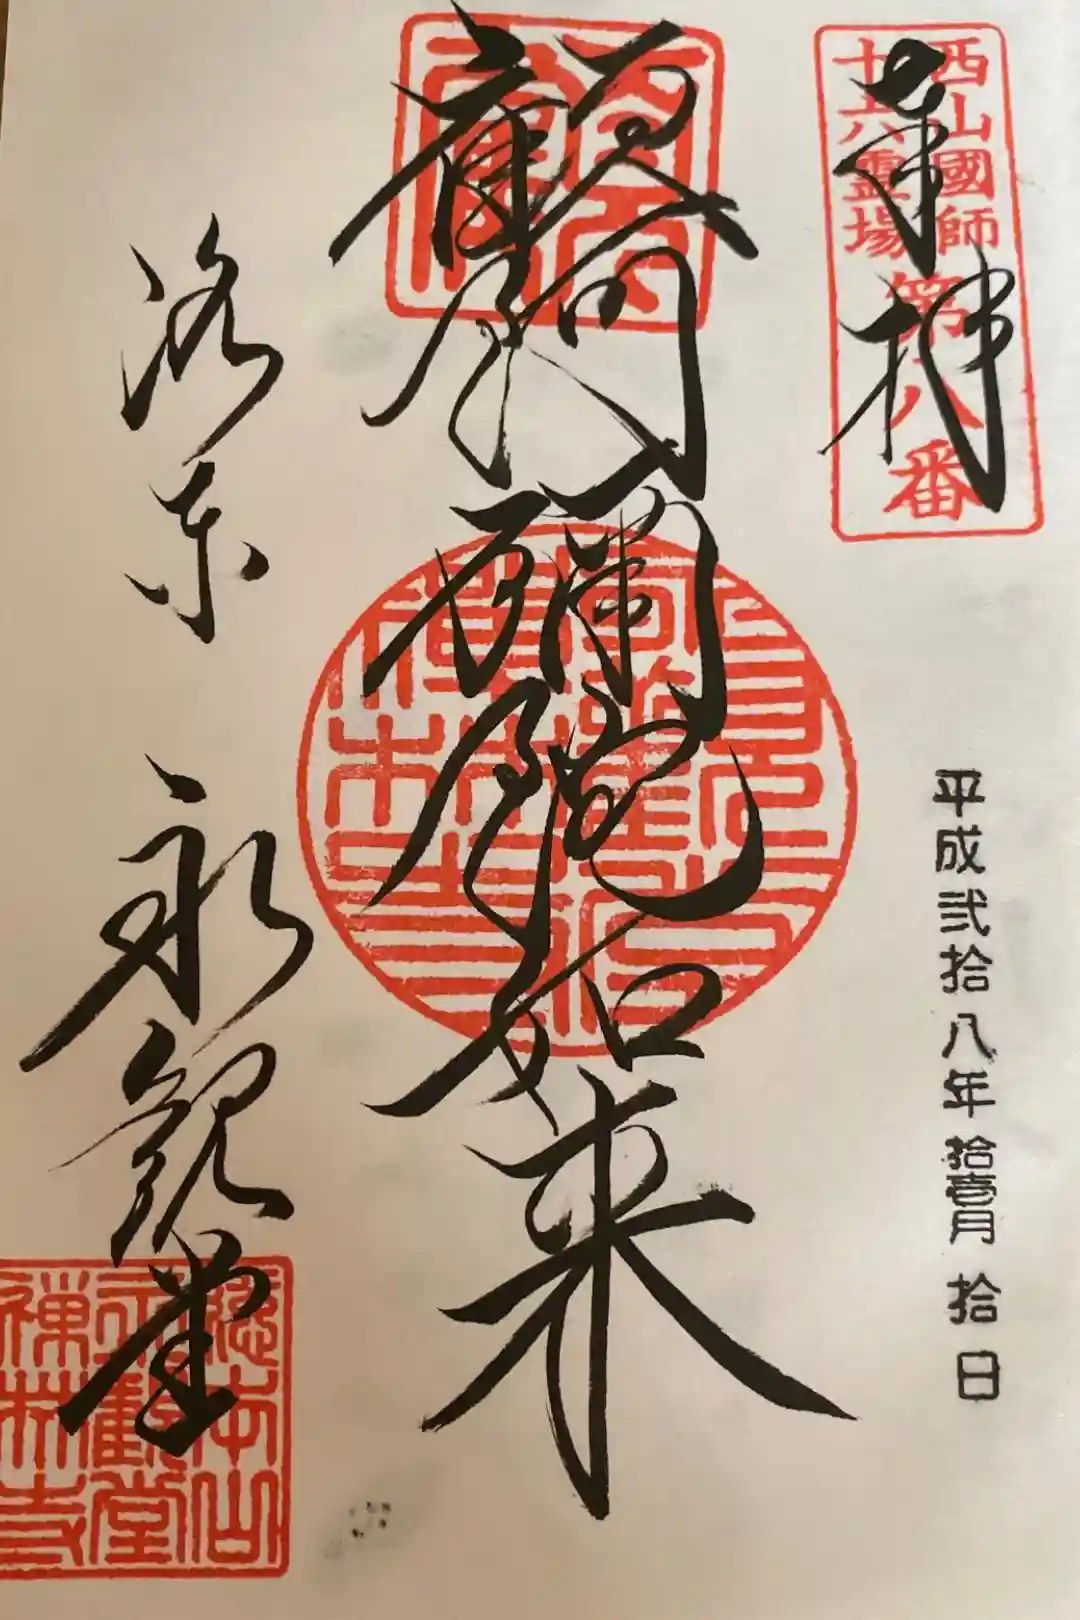 奉拝
西山國師
十六霊場
第八番
平成弐拾八年拾壱月拾日
顧阿彌陀如来
洛東 永観堂
総本山
永觀堂
禅林寺